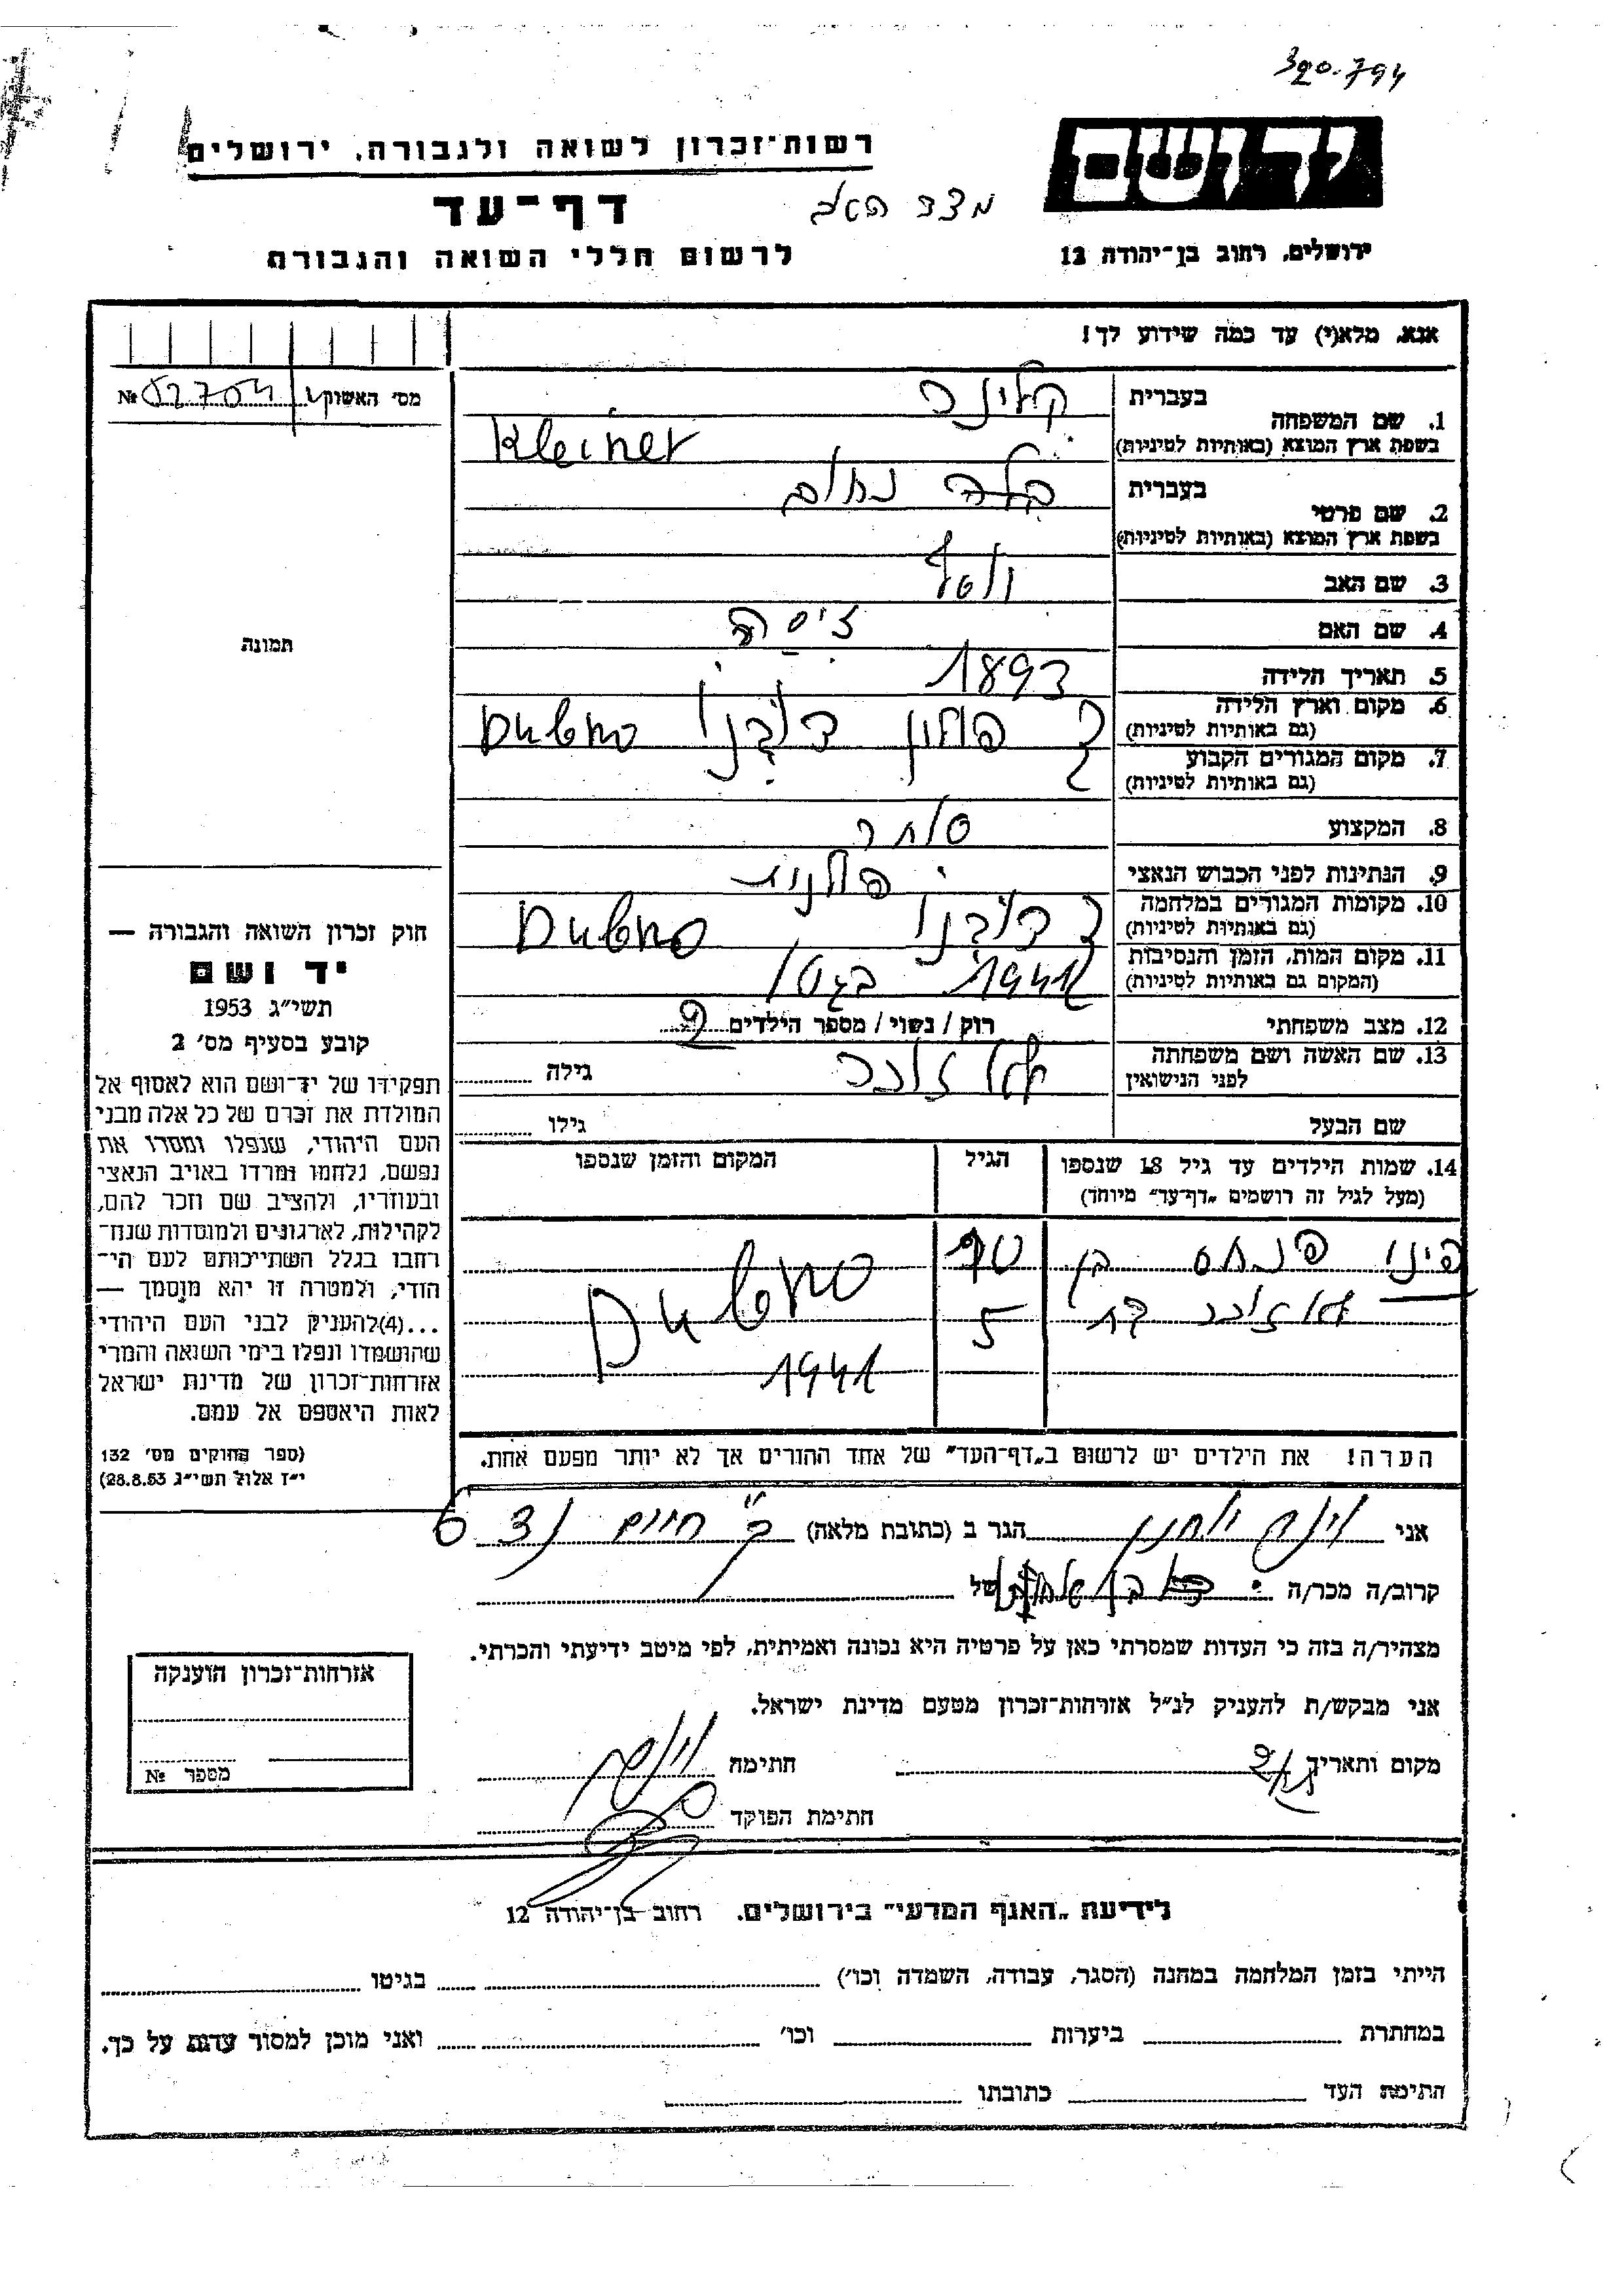 320.794
רשות־זכרון לשואה ולגבורה, ירושלים
יד ושם
דף־עד
לרשום חללי השואה והגבורה
ירושלים, רחוב בן־יהודה 12
אנא, מלא(י) עד כמה שידוע לך!
מס׳ האשוק
№ 52704
1. שם המשפחה בעברית קלינר
בשפת ארץ המוצא (באותיות לטיניות) Kleiner
2. שם פרטי בעברית נחום
בשפת ארץ המוצא (באותיות לטיניות)
3. שם האב וולף
4. שם האם זיסה
5. תאריך הלידה 1893
6. מקום וארץ הלידה (גם באותיות לטיניות) פולין דובנו
7. מקום המגורים הקבוע (גם באותיות לטיניות)
8. המקצוע סוחר
9. הנתינות לפני הכבוש הנאצי פולנית
10. מקומות המגורים במלחמה (גם באותיות לטיניות) דובנו
11. מקום המות, הזמן והנסיבות (המקום גם באותיות לטיניות) 1941 בגטו
12. מצב משפחתי רוק / נשוי / מספר הילדים 2
13. שם האשה ושם משפחתה לפני הנישואין גילה
שם הבעל גילו
14. שמות הילדים עד גיל 18 שנספו (מעל לגיל זה רושמים „דף־עד״ מיוחד) הגיל המקום והזמן שנספו
פנחס בן
בת 5
1941
הערה! את הילדים יש לרשום ב„דף־העד״ של אחד ההורים אך לא יותר מפעם אחת.
תמונה
חוק זכרון השואה והגבורה —
יד ושם
תשי״ג 1953
קובע בסעיף מס׳ 2
תפקידו של יד־ושם הוא לאסוף אל
המולדת את זכרם של כל אלה מבני
העם היהודי, שנפלו ומסרו את
נפשם, נלחמו ומרדו באויב הנאצי
ובעוזריו, ולהציב שם וזכר להם,
לקהילות, לארגונים ולמוסדות שנח־
רחבו בגלל השתייכותם לעם הי־
הודי, ולמטרה זו יהא מוסמך —
...(4)להעניק לבני העם היהודי
שהושמדו ונפלו בימי השואה והמרי
אזרחות־זכרון של מדינת ישראל
לאות היאספם אל עמם.
(ספר החוקים מס׳ 132
י״ז אלול תשי״ג 28.8.53)
אני הגר ב (כתובת מלאה)
קרוב/ה מכר/ה של
מצהיר/ה בזה כי העדות שמסרתי כאן על פרטיה היא נכונה ואמיתית, לפי מיטב ידיעתי והכרתי.
אני מבקש/ת להעניק לנ״ל אזרחות־זכרון מטעם מדינת ישראל.
מקום ותאריך חתימה
חתימת הפוקד
אזרחות־זכרון הוענקה
מספר №
לידיעת „האגף המדעי״ בירושלים. רחוב בן־יהודה 12
הייתי בזמן המלחמה במחנה (הסגר, עבודה, השמדה וכו׳) בגיטו
במחתרת ביערות וכו׳ ואני מוכן למסור עדות על כך.
חתימת העד כתובתו